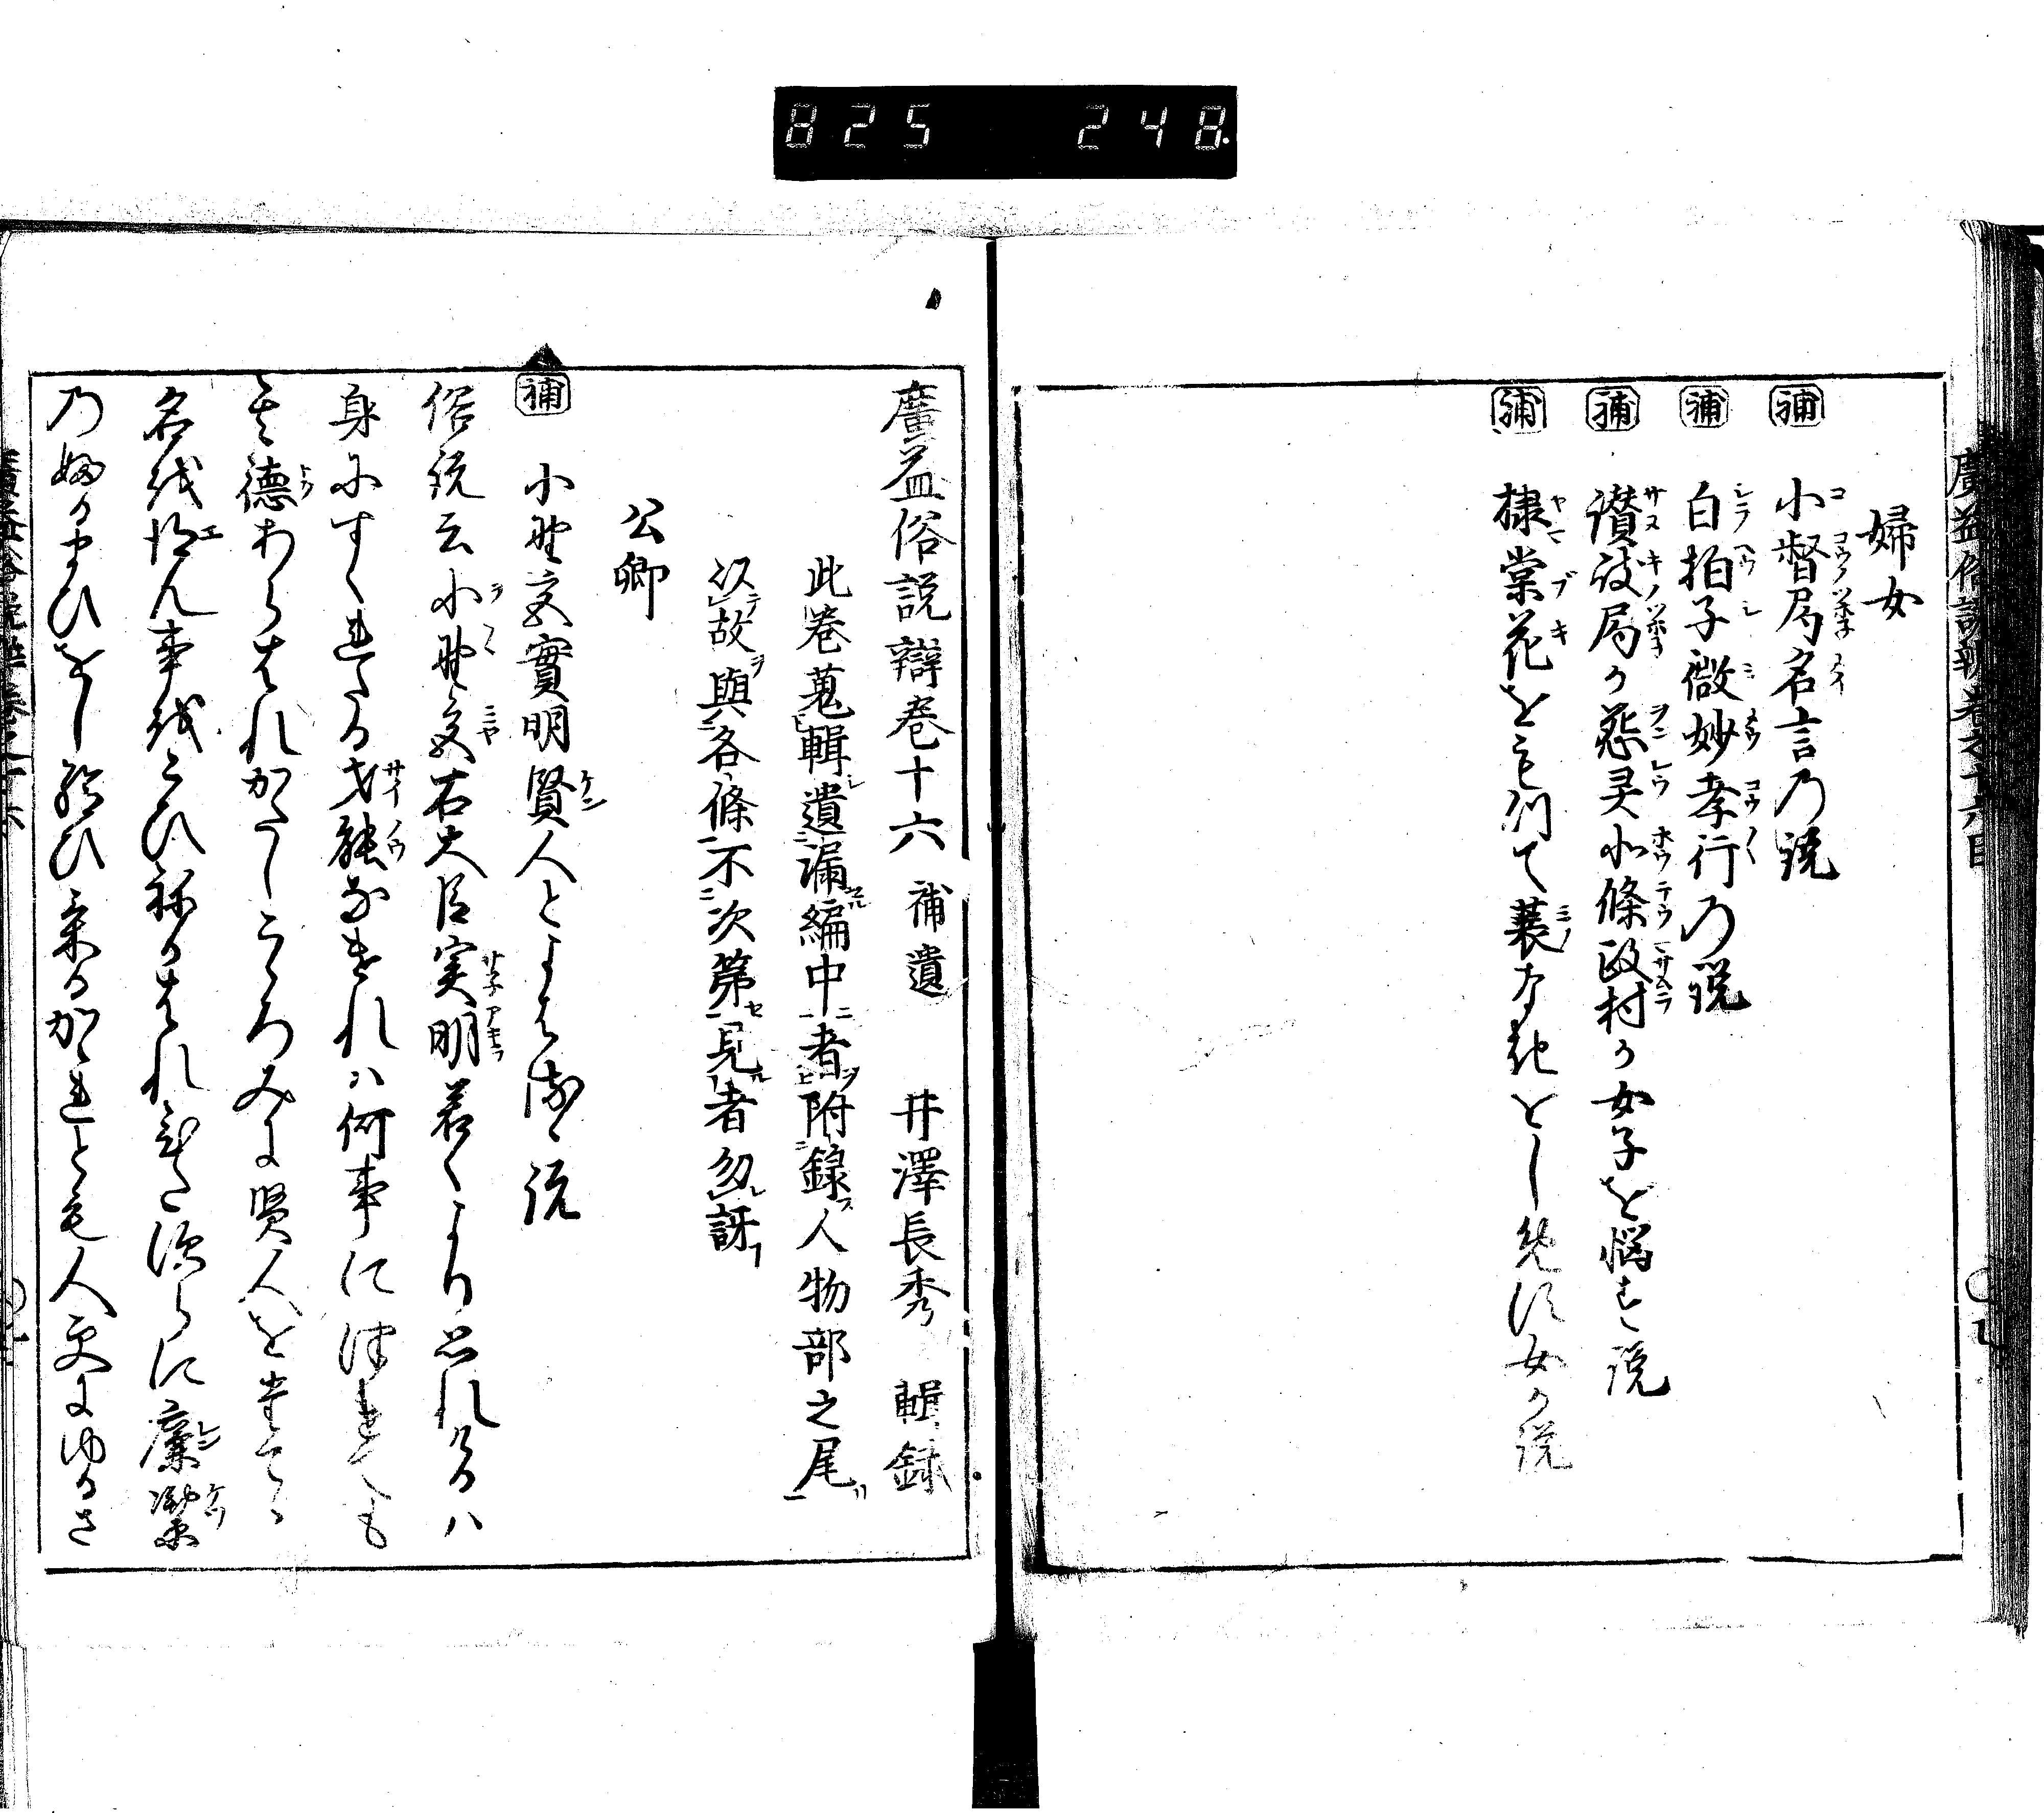 825 248
廣益俗説辯巻之十六目
婦女
補 小督局名言乃説
補 白拍子微妙孝行の説
補 讃岐局か怨灵北條政村か女子を悩す説
補 棣棠花をもつて蓑なきをしらせし女の説
廣益俗説辯巻十六 補遺 井澤長秀 輯録
此巻蒐輯遺漏編中者附録人物部之尾
以故與各條不次第見者勿訝
公卿
補 小野宮實明賢人とよはるゝ説
俗説云小野宮右大臣実明若くより思れけるハ
身にすくれたる才能なけれハ何事に津けても
其徳あらはれかたしこゝろみに賢人を
名越得ん事越こひねかはれ廉潔
乃婦るまひをし給ひ